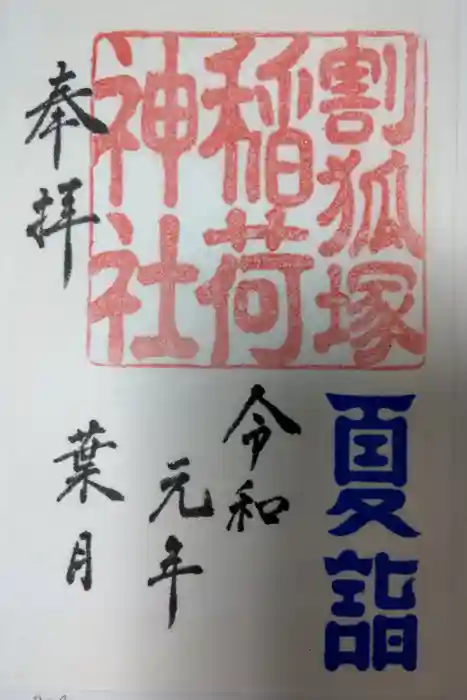 割狐塚
稲荷
神社
奉拝
夏詣
令和
元年
葉月